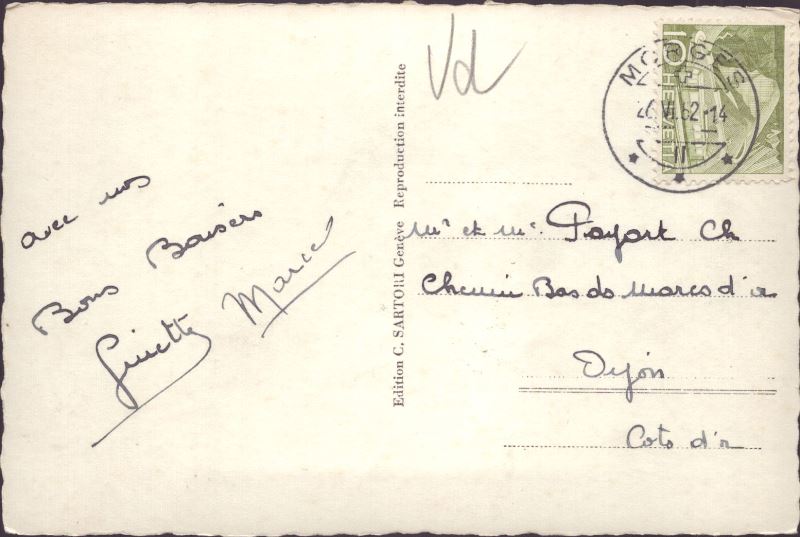 Vd
MORGES
26.VI.52-14
II
HELVETIA
10
avec nos
Bons Baisers
Ginette Marcel
Edition C. SARTORI Genève Reproduction interdite
Mr et Me Payart Ch
Chemin Bas do Marcs d'or
Dijon
Cote d'or